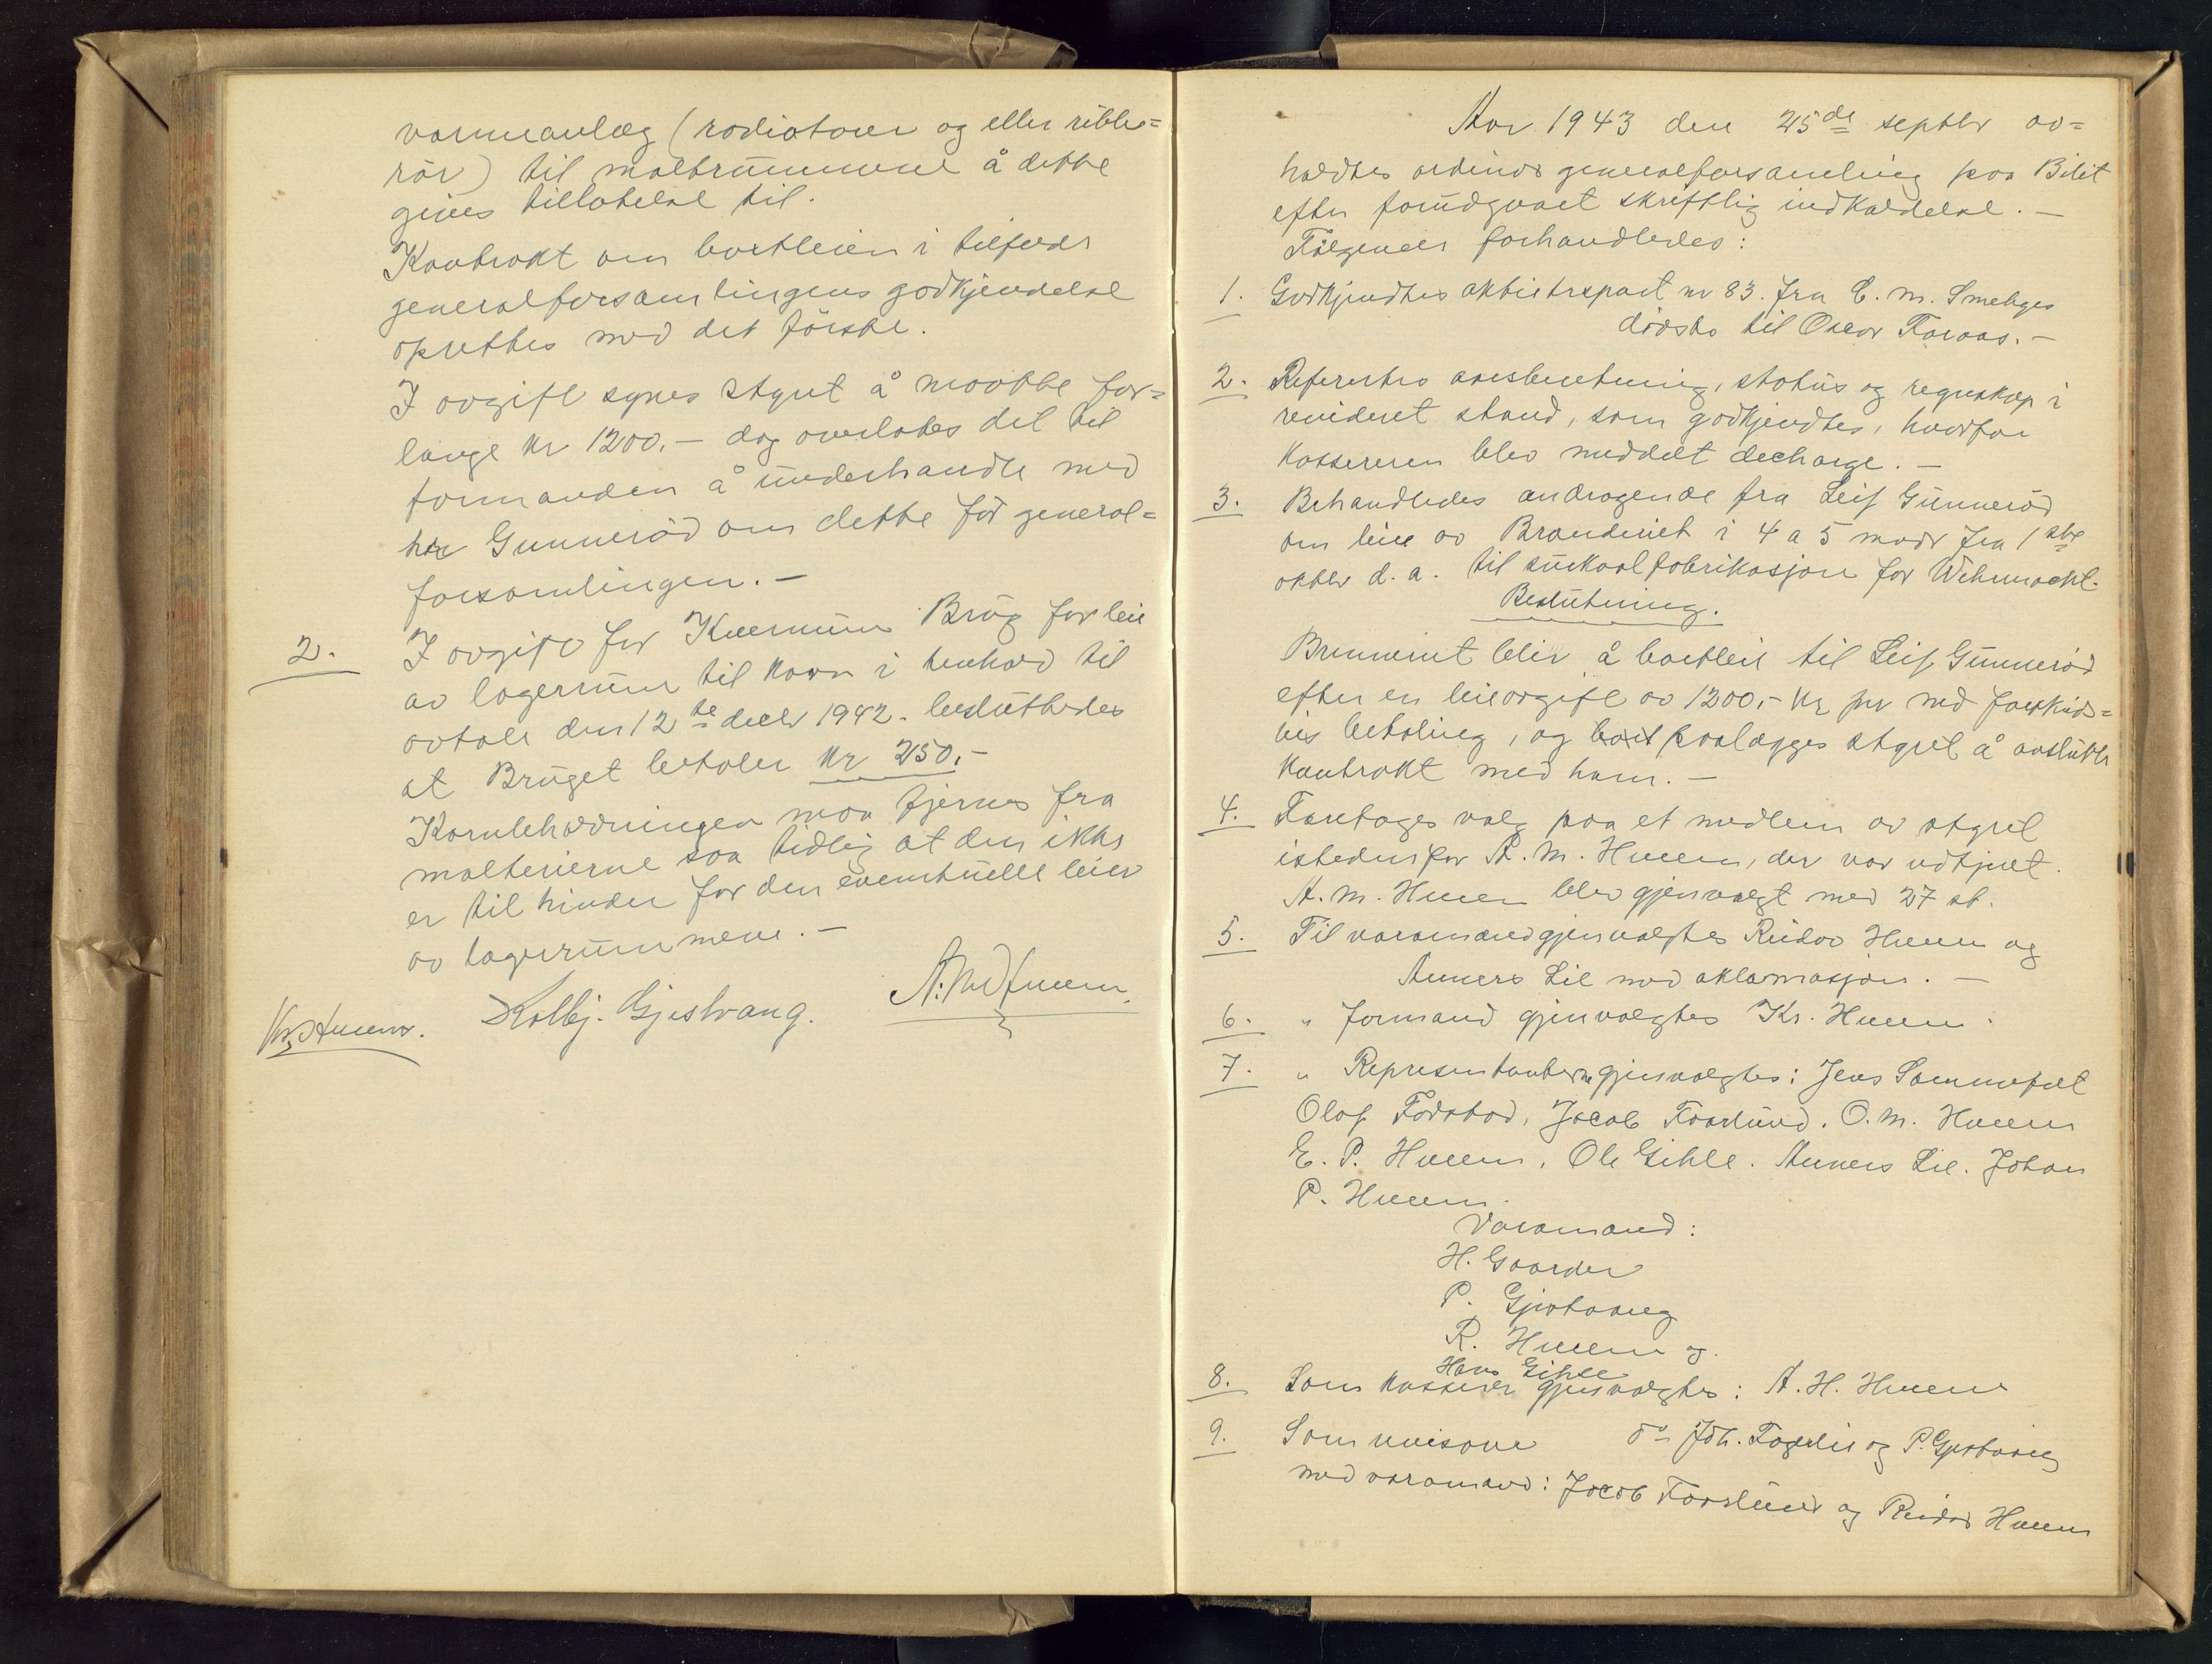 varmeanlæg (radiatorer og eller ribbe=
rör) til maltrummene å dette
gives tillatelse til.
Kontrakt om bortleien i tilfælde
generalforsamlingens godkjendelse
oprettes med det förste.
I avgift synes styret å maatte for=
lange kr 1200.- dog overlates det til
formanden å underhandle med
hr Gunneröd om dette för general=
forsamlingen.-
2. I avgift for Kvernum Brug for leie
av lagerrum til korn i henhold til
avtale den 12te decbr 1942. besluttedes
at Bruget betaler kr 250.-
Kornbeholdningen maa fjernes fra
malterierne saa tidlig at den ikke
er til hinder for den eventuelle leier
av lagerrummene.-
Kr. Hveem. Kolbj. Gjestvang. A. M. Hveem.
Aar 1943 den 25de septbr av=
holdtes ordinær generalforsamling paa Bilit
efter forudgaaet skriftlig indkaldelse.-
Følgende forhandledes:
1. Godkjendtes aktietrspört nr 83. fra C. M. Smebyes
dödsbo til Oscar Faraas.-
2. Refererties aarsberetning, status og regnskap i
revideret stand, som godkjendtes, hvorfor
kassereren blev meddelt decharge.-
3. Behandledes andragende fra Leif Gunneröd
om leie av Brænderiet i 4 a 5 mndr fra 1ste
oktbr d.a. til surkaalfabrikasjon for Wehrmacht.
Beslutning.
Brenneriet blir å bortleie til Leif Gunneröd
efter en leieavgift av 1200,- kr pr md forskuds=
vis betaling, og paalægges styret å avslutte
kontrakt med ham.-
4. Foretages valg paa et medlem av styret
istedenfor A. M. Hveem, der var udtjent.
A. M. Hveem blev gjenvalgt med 27 st.
5. Til varamænd gjenvalgtes Reidar Hveem og
Anners Lie med aklamasjon.-
6. " formand gjenvalgtes Kr. Hveem.
7. " Representanterne gjenvalgtes: Jens Sommefelt
Olaf Fodstad, Jacob Faarlund. O. M. Hveem
E. P. Hveem, Ole Gihle. Anners Lie. Johan
P. Hveem.
Varamænd:
H. Gaarder
P. Gjestvang
R. Hveem og.
Hans Gihle
8. Som kasserer gjenvalgtes: A. H. Hveem
9. Som revisorer do Joh. Fagerlie og P. Gjestvang
med varamænd: Jacob Faarlund og Reidar Hveem